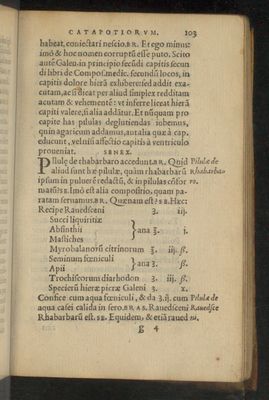 CATAPOTIORVM. 103
habeat, coniectari nescio. BR. Et ego minus:
imò & hoc nomen corruptū esse puto. Scito
autē Galen. in principio secūdi capitis secun
di libri de Compos. medic. secundū locos, in
capitis dolore hierā exhibere: sed addit exa-
cutam, ac si dicat per aliud simplex redditam
acutam & vehementē: vt inferre liceat hierā
capiti valere, si alia addātur. Et nūquam pro
capite has pilulas deglutiendas iubemus,
quin agaricum addamus, aut alia quæ à cap.
educunt, vel nisi affectio capitis à ventriculo
proueniat. SENEX.
Pillulę de rhabarbaro accedunt. BR. Quid Pilulæ de
aliud sunt hæ pilulæ, quàm rhabarbarū Rhabarba-
ipsum in puluerē redactū, & in pilulas cōfor ro.
matū? SE. Imò est alia compositio, quam pa-
ratam seruamus. BR. Quænam est? SE. Hæc:
Recipe Rauedsceni ʒ. iij.
Succi liquiritiæ
Absinthii } ana ʒ. j.
Mastiches
Myrobalanoū citrinorum ʒ. iij. ß.
Seminum fœniculi } ana ʒ. ß.
Apii
Trochiscorum diarhodon ʒ. iij. ß.
Specierū hieræ picræ Galeni ʒ. x.
Confice cum aqua fœniculi, & da ʒ. ij. cum Pilulæ de
aqua casei calida in sero. BRAS. Rauedsceni Rauedsce
Rhabarbarū est. SE. Equidem, & etiā raued ni.
g 4